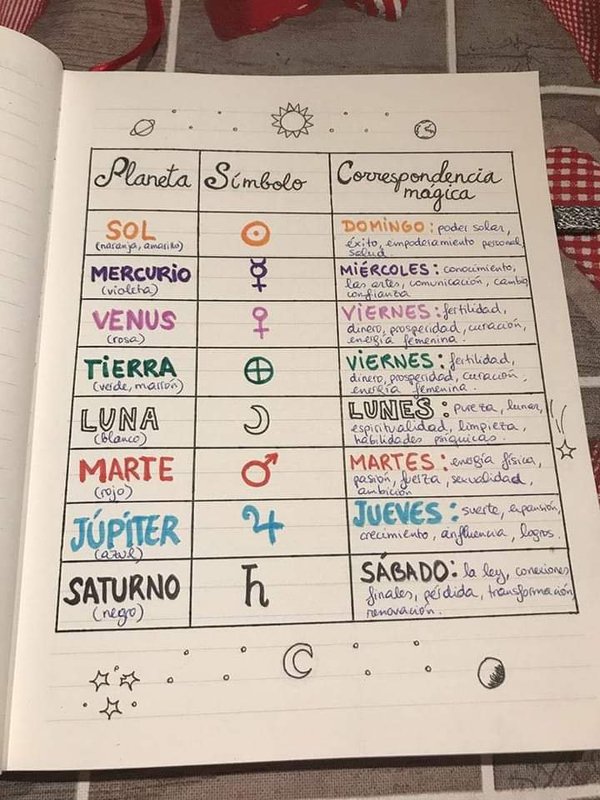 Planeta
Símbolo
Correspondencia
mágica
SOL
(naranja, amarillo)
DOMINGO: poder solar,
éxito, empoderamiento personal
salud
MERCURIO
(violeta)
MIÉRCOLES: conocimiento,
las artes, comunicación, cambio,
confianza
VENUS
(rosa)
VIERNES: fertilidad,
dinero, prosperidad, curación,
energía femenina.
TIERRA
(verde, marrón)
VIERNES: fertilidad,
dinero, prosperidad, curación,
energía femenina.
LUNA
(blanco)
LUNES: pureza, lunar,
espiritualidad, limpieza,
habilidades psíquicas.
MARTE
(rojo)
MARTES: energía física,
pasión, fuerza, sexualidad,
ambición
JÚPITER
(azul)
JUEVES: suerte, expansión,
crecimiento, influencia, logros.
SATURNO
(negro)
SÁBADO: la ley, conexiones
finales, pérdida, transformación
renovación.